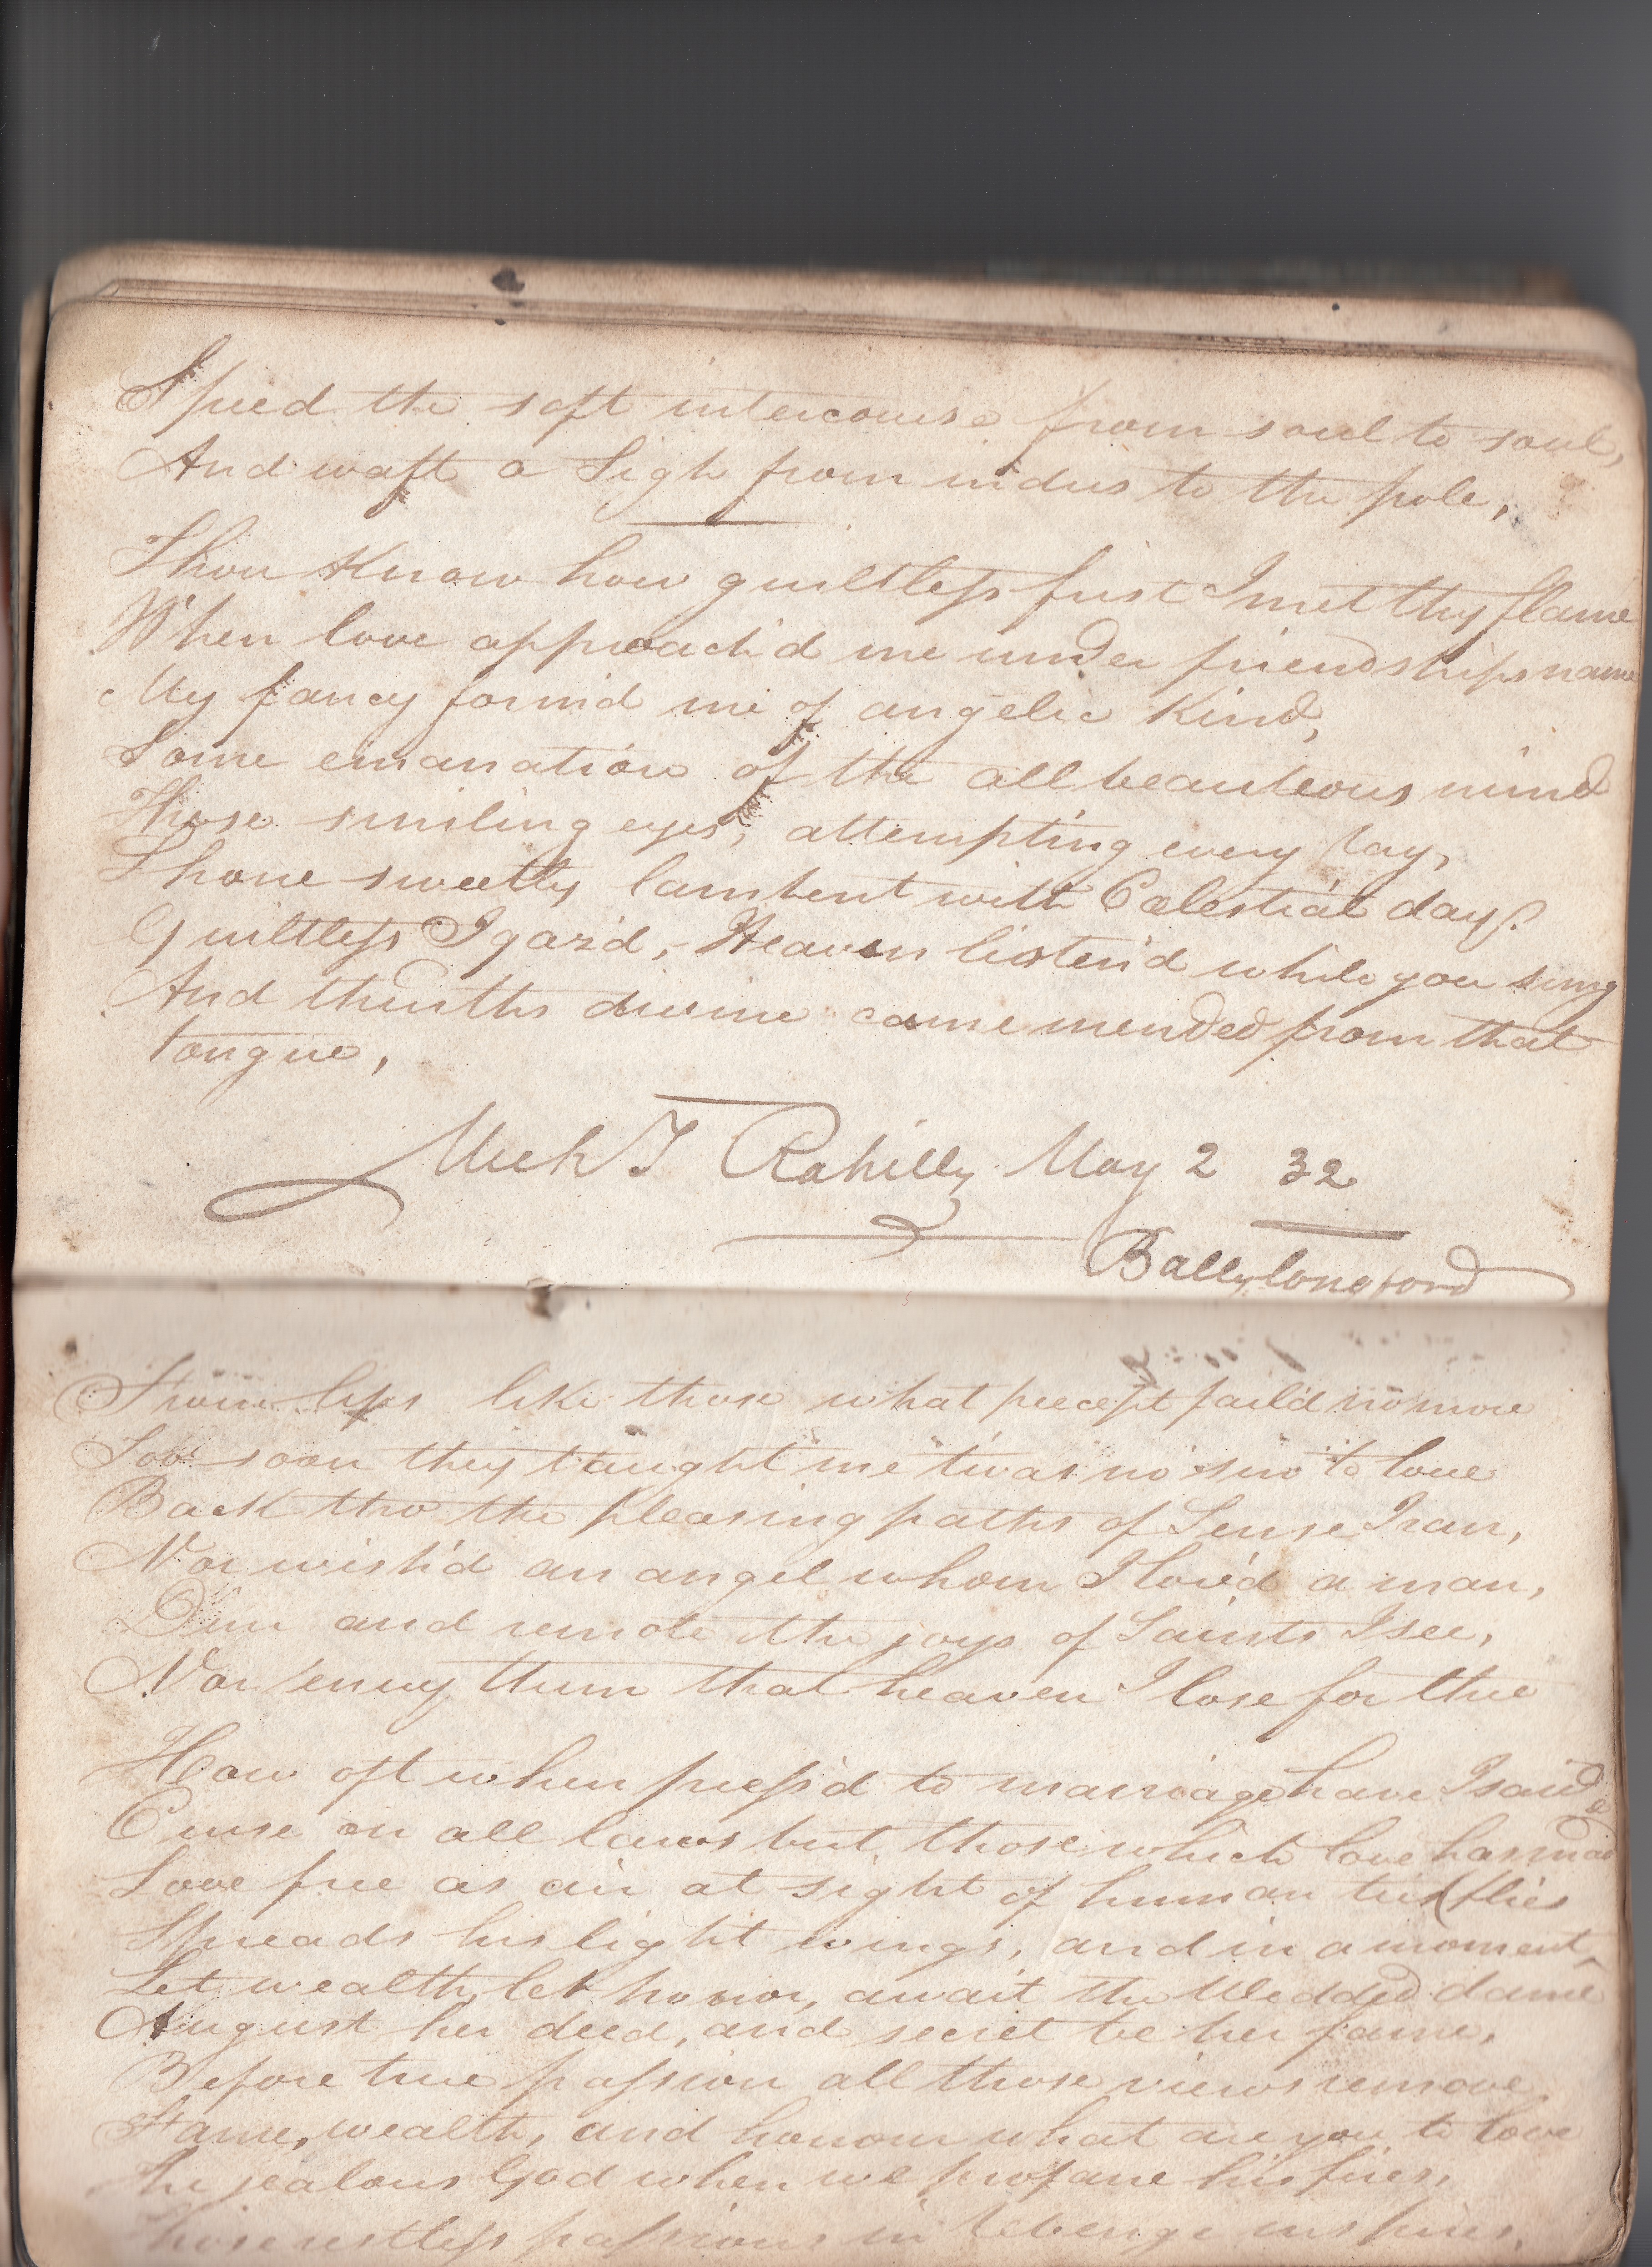 Speed the soft intercourse from soul to soul,
And waft a Sigh from indus to the pole,
Thou Know how guiltless first I met thy flame
When love approach'd me under friendships name
My fancy form'd me of angelic Kind,
Some emanation of the all beauteous mind
Those smiling eyes, attempting every ray,
Shone sweetly lambent with Celestial day.
Guiltless I gaz'd, Heaven listen'd while you sung
And thruths divine came mended from that
tongue,
Mich J Rahilly May 2 32
Ballylongford
From lips like those what precept fail'd no more
Too soon they taught me twas no sin to love
Back thro the pleasing paths of Sense I ran,
Nor wish'd an angel whom I lov'd a man,
Dim and remote the joys of Saints I see,
Nor envy them that heaven I lose for thee
How oft when press'd to marriage have I said
Curse on all laws but those which love has made
Love free as air at sight of human ties flies
Spreads his light wings, and in a moment
Let wealth, let honor, await the Wedded dame
August her deed, and secret be her fame,
Before true passion all those views remove
Fame, wealth, and honour what are you to love
The jealous God when we profane his fires,
Those restless passions in Revenge inspires,